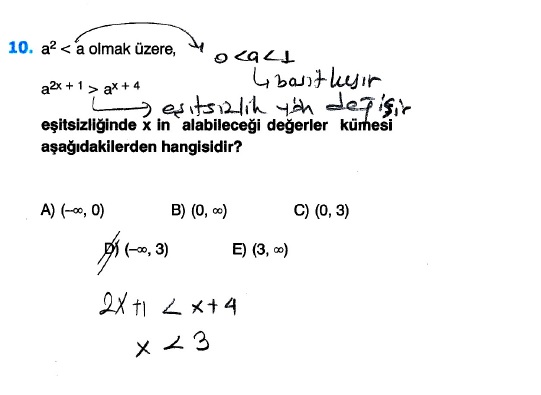 10. a² < a olmak üzere,
0<a<1
↳ basit kesir
a²ˣ ⁺ ¹ > aˣ ⁺ ⁴
eşitsizlik yön değişir
eşitsizliğinde x in alabileceği değerler kümesi
aşağıdakilerden hangisidir?
A) (–∞, 0) B) (0, ∞) C) (0, 3)
D) (–∞, 3) E) (3, ∞)
2x+1 < x+4
x < 3